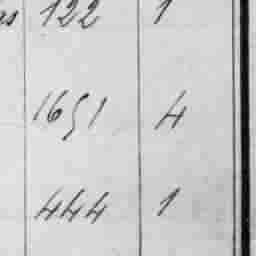 as 122 1
1651 4
444 1